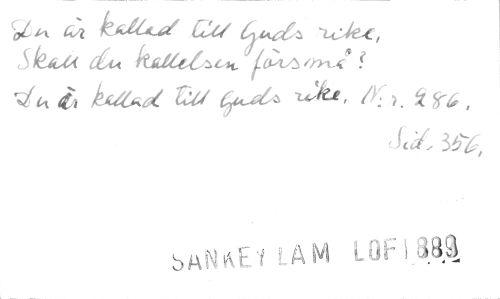 Du är kallad till Guds rike,
Skall du kallelsen försmå?
Du är kallad till Guds rike. N:r. 286.
Sid. 356.
SANKEY LAM LOF 1889